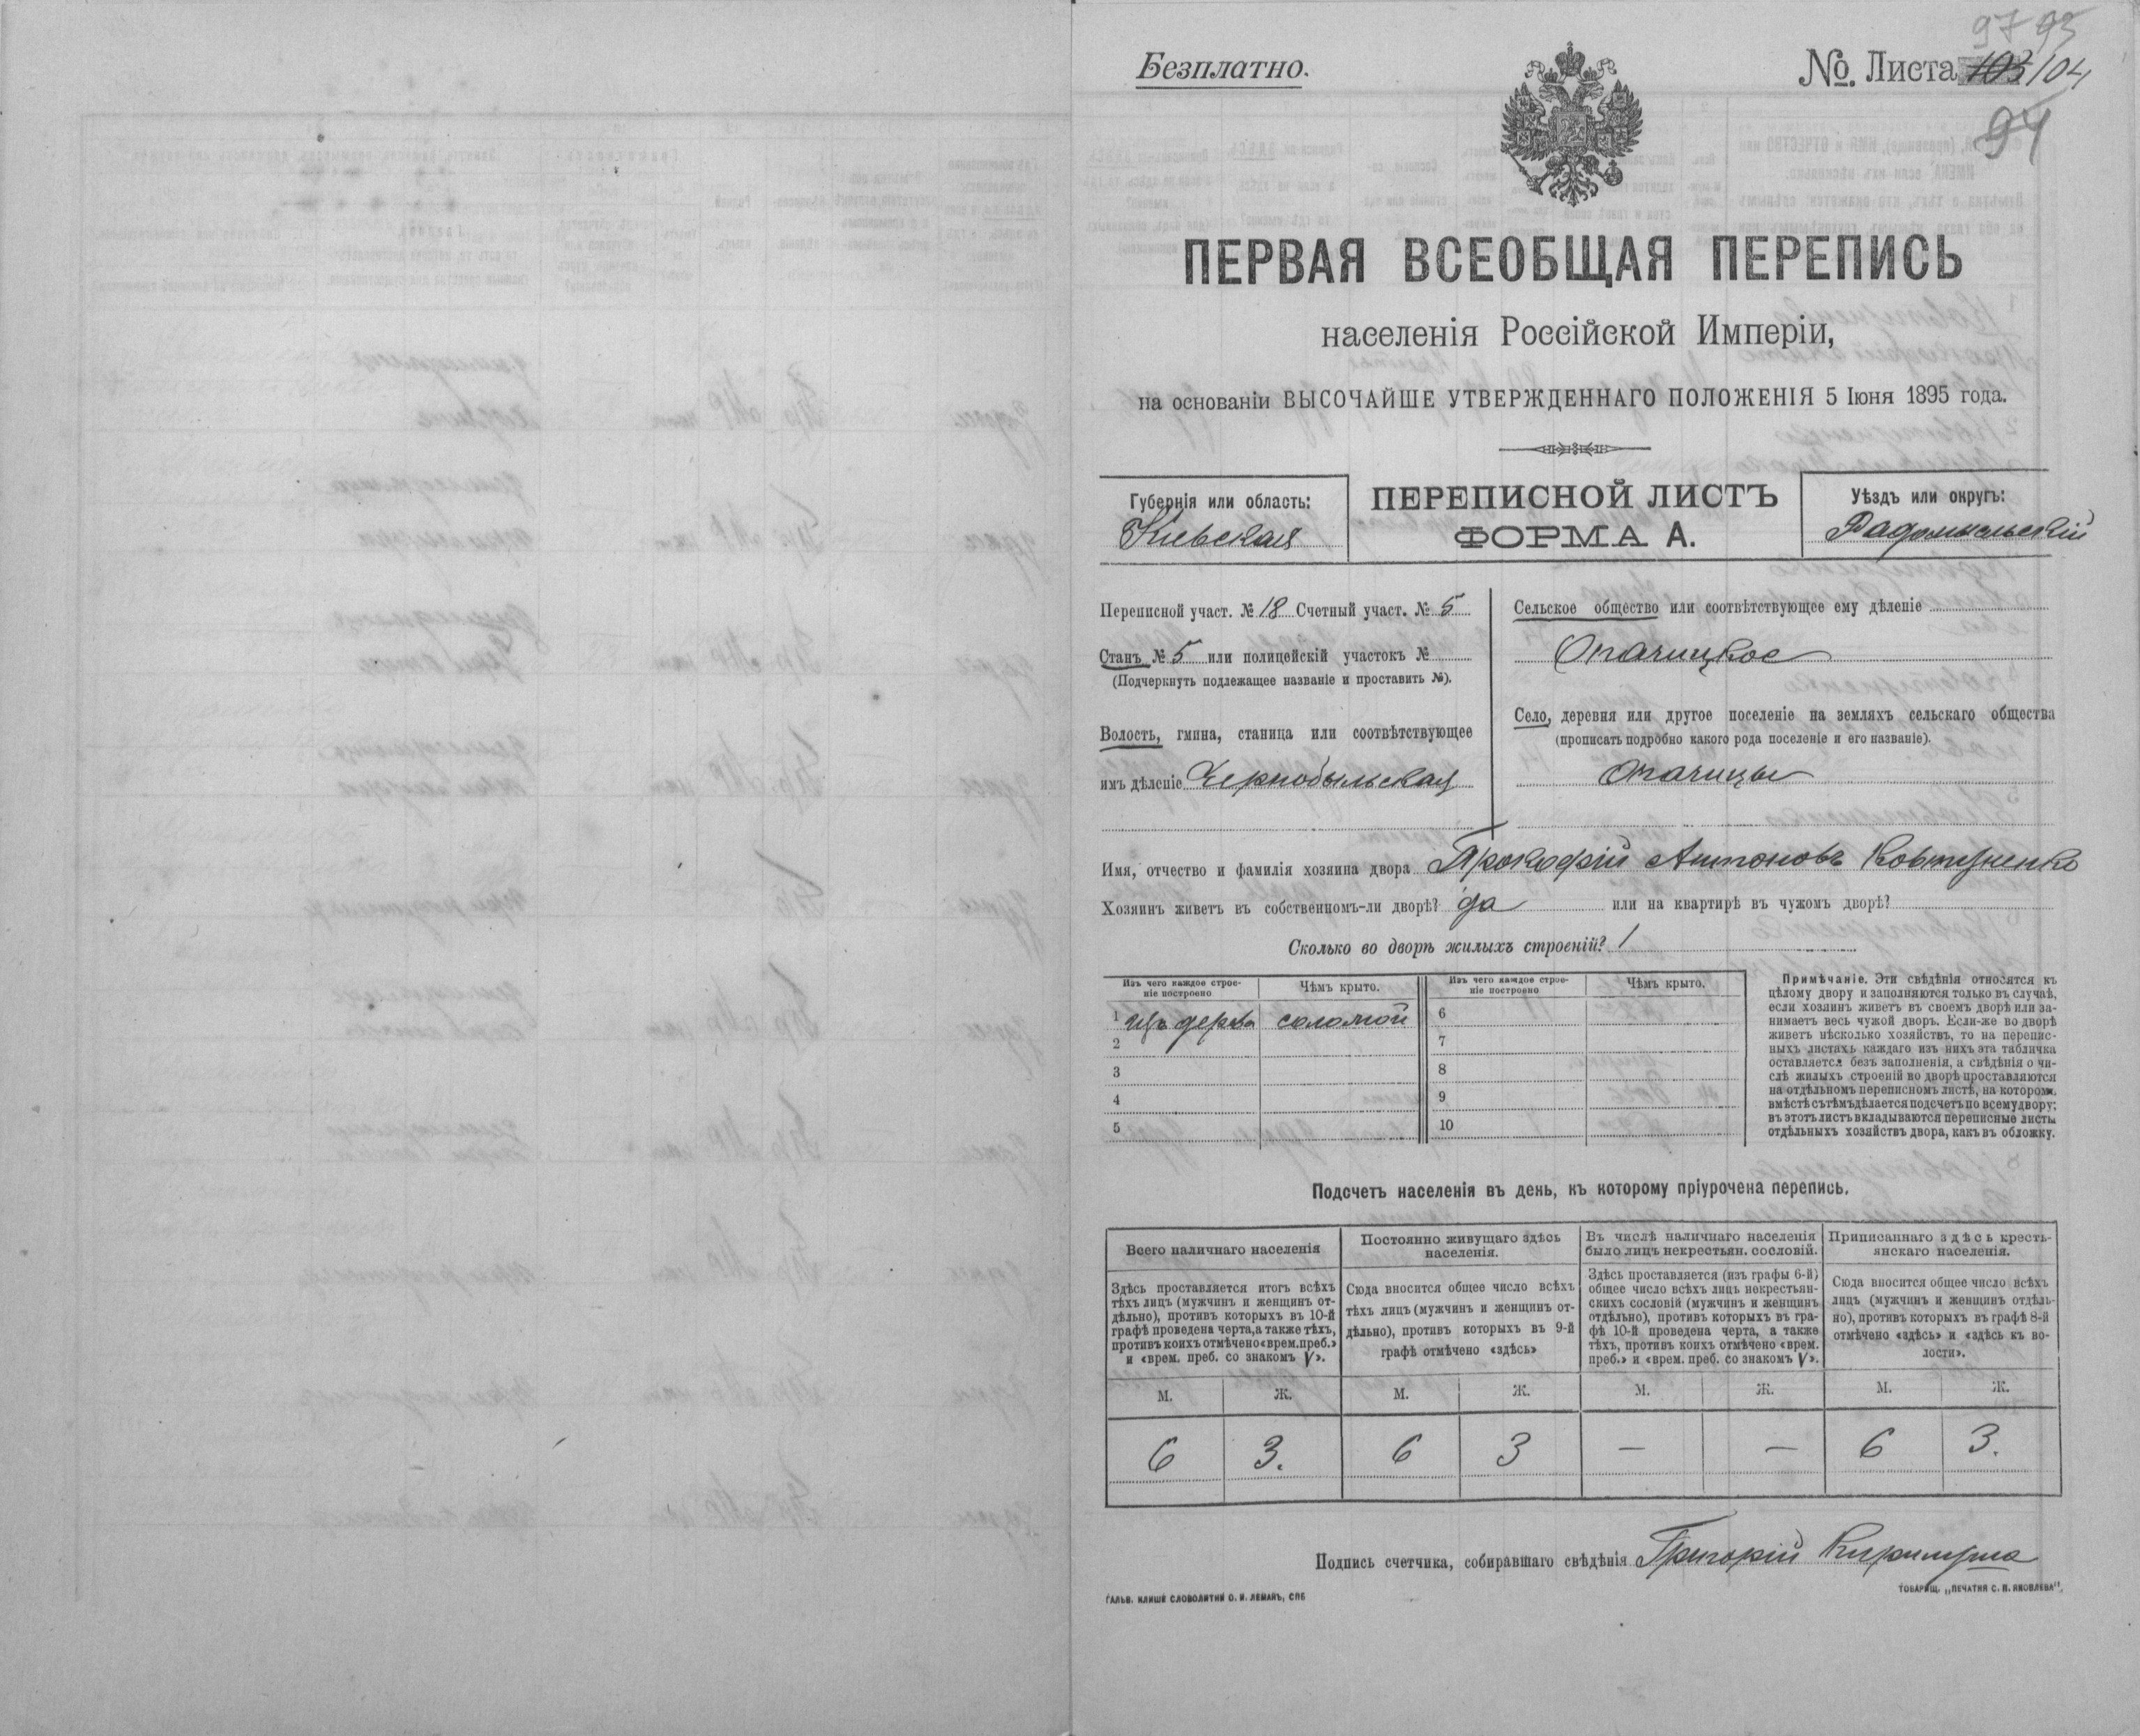 97 93
Безплатно.
№. Листа 103 104
94
ПЕРВАЯ ВСЕОБЩАЯ ПЕРЕПИСЬ
населенія Россійской Имперіи,
на основаніи ВЫСОЧАЙШЕ УТВЕРЖДЕННАГО ПОЛОЖЕНІЯ 5 Іюня 1895 года.
Губернія или область:
Кіевская
ПЕРЕПИСНОЙ ЛИСТЪ
ФОРМА А.
Уѣздъ или округъ:
Радомысльскій
Переписной участ. № 18 Счетный участ. № 5
Станъ № 5 или полицейскій участокъ №
(Подчеркнуть подлежащее названіе и проставить №).
Волость, гмина, станица или соотвѣтствующее
имъ дѣленіе Чернобыльская
Сельское общество или соотвѣтствующее ему дѣленіе
Опачицкое
Село, деревня или другое поселеніе на земляхъ сельскаго общества
(прописать подробно какого рода поселеніе и его названіе).
Опачицы
Имя, отчество и фамилія хозяина двора Прокофій Антоновъ Ковтуненко
Хозяинъ живетъ въ собственномъ-ли дворѣ? да или на квартирѣ въ чужомъ дворѣ?
Сколько во дворѣ жилыхъ строеній? 1
Изъ чего каждое строе-
ніе построено
Чѣмъ крыто.
Изъ чего каждое строе-
ніе построено
Чѣмъ крыто.
1 изъ дерева соломой 6
2 7
3 8
4 9
5 10
Примѣчаніе. Эти свѣдѣнія относятся къ
цѣлому двору и заполняются только въ случаѣ,
если хозяинъ живетъ въ своемъ дворѣ или за-
нимаетъ весь чужой дворъ. Если-же во дворѣ
живетъ нѣсколько хозяйствъ, то на перепис-
ныхъ листахъ каждаго изъ нихъ эта табличка
оставляется безъ заполненія, а свѣдѣнія о чи-
слѣ жилыхъ строеній во дворѣ проставляются
на отдѣльномъ переписномъ листѣ, на которомъ
вмѣстѣ съ тѣмъ дѣлается подсчетъ по всему двору;
въ этотъ листъ вкладываются переписные листы
отдѣльныхъ хозяйствъ двора, какъ въ обложку.
Подсчетъ населенія въ день, къ которому пріурочена перепись.
Всего наличнаго населенія
Здѣсь проставляется итогъ всѣхъ
тѣхъ лицъ (мужчинъ и женщинъ от-
дѣльно), противъ которыхъ въ 10-й
графѣ проведена черта, а также тѣхъ,
противъ коихъ отмѣчено «врем. преб.»
и «врем. преб. со знакомъ V».
Постоянно живущаго здѣсь
населенія.
Сюда вносится общее число всѣхъ
тѣхъ лицъ (мужчинъ и женщинъ от-
дѣльно), противъ которыхъ въ 9-й
графѣ отмѣчено «здѣсь»
Въ числѣ наличнаго населенія
было лицъ некрестьян. сословій.
Здѣсь проставляется (изъ графы 6-й)
общее число всѣхъ лицъ некрестьян-
скихъ сословій (мужчинъ и женщинъ
отдѣльно), противъ которыхъ въ гра-
фѣ 10-й проведена черта, а также
тѣхъ, противъ коихъ отмѣчено «врем.
преб.» и «врем. преб. со знакомъ V».
Приписаннаго здѣсь кресть-
янскаго населенія.
Сюда вносится общее число всѣхъ
лицъ (мужчинъ и женщинъ отдѣль-
но), противъ которыхъ въ графѣ 8-й
отмѣчено «здѣсь» и «здѣсь къ во-
лости».
М. Ж. М. Ж. М. Ж. М. Ж.
6 3. 6 3 — — 6 3.
Подпись счетчика, собиравшаго свѣдѣнія Григорій
ГАЛЬВ. КЛИШЕ СЛОВОЛИТНИ О. И. ЛЕМАНЪ, СПБ
ТОВАРИЩ. „ПЕЧАТНЯ С. П. ЯКОВЛЕВА".